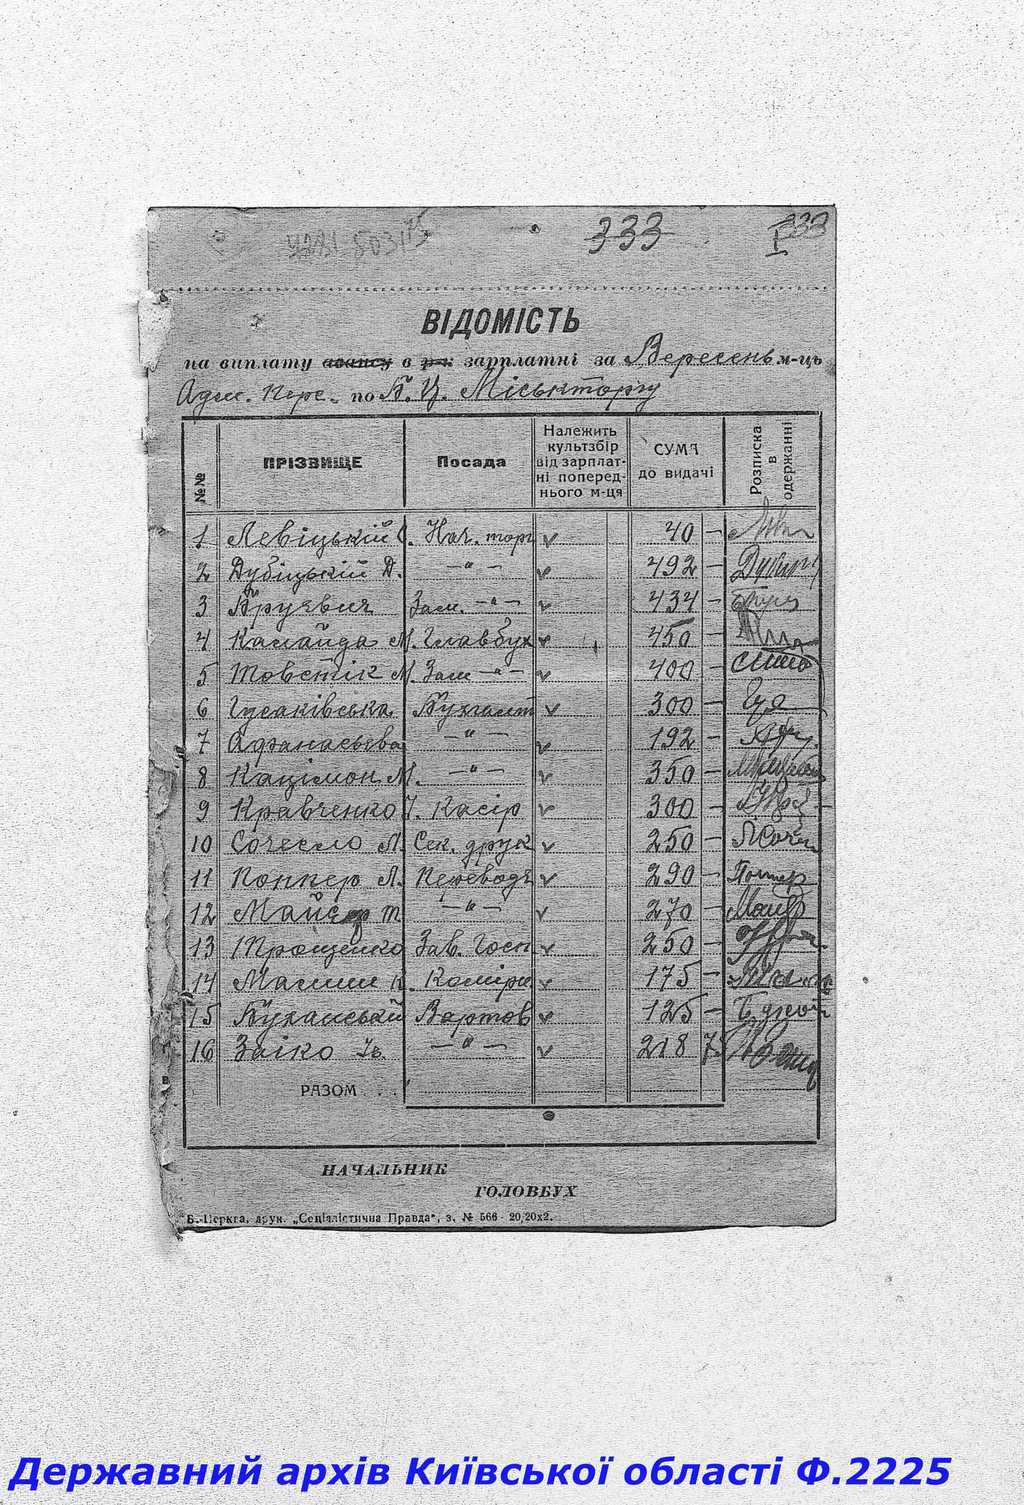 333
333
I
ВІДОМІСТЬ
на виплату авансу в р-к зарплатні за Вересень м-ць
Адм. Перс. по Б. Ц. Міськторгу
№№ ПРІЗВИЩЕ Посада Належить культзбір від зарплатні попереднього м-ця СУМА до видачі Розписка в одержанні
1 Левіцький С. Нач. торг v 40 —
2 Дубіцький Д. —"— v 492 —
3 Бруєвич Зам. —"— v 434 —
4 Калайда М. Главбух v 450 —
5 Товстік М. Зам —"— v 400 —
6 Гусаківська Бухгалт v 300 —
7 Афанасьєва —"— v 192 —
8 Кацімон М. —"— v 350 —
9 Кравченко Т. Касір v 300 —
10 Сочесло Л. Сек. друк v 250 —
11 Поппер Л. Переводч v 290 —
12 Майєр Т —"— v 270 —
13 Трощенко Зав. Госп v 250 —
14 Маслии К. Комірн v 175 —
15 Буканський Вартов v 125 —
16 Заіко Ів. —"— v 218 75
РАЗОМ . .
НАЧАЛЬНИК
ГОЛОВБУХ
Б.-Церква, друк. „Соціялістична Правда", з. № 566 - 20,20х2.
Державний архів Київської області Ф.2225